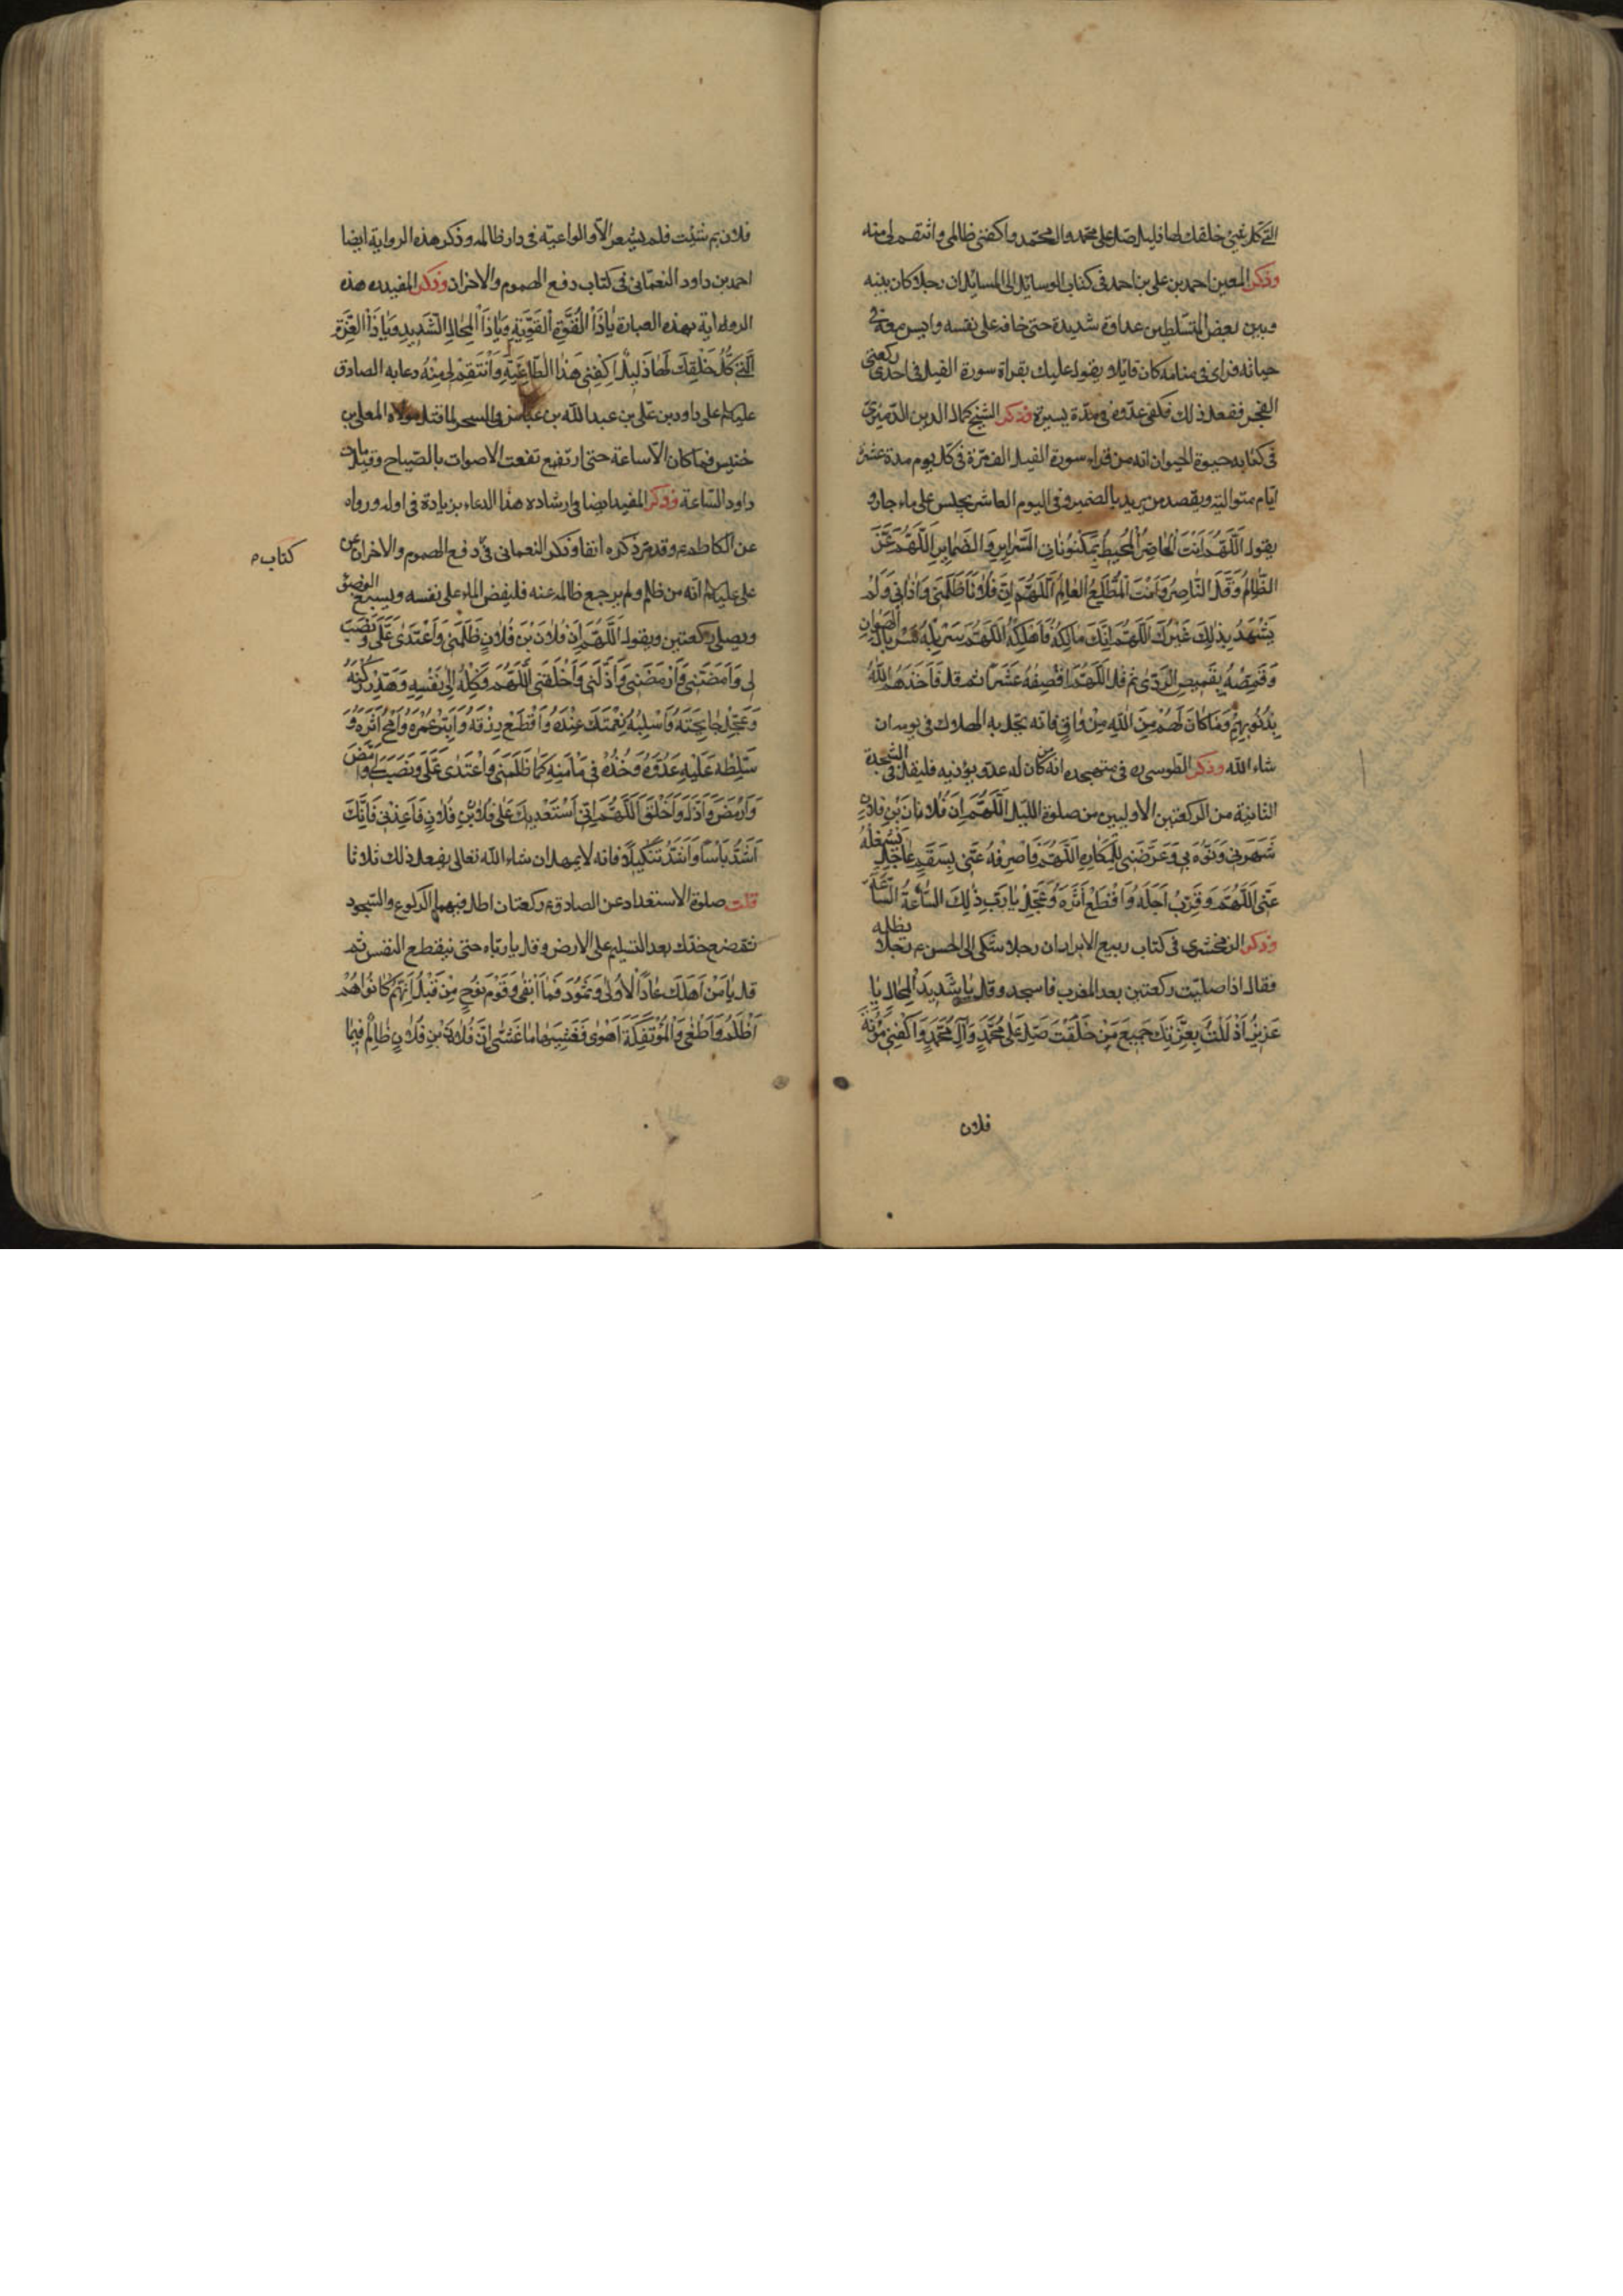 التي كل شيء خلقك لها ذليل صل على محمد وال محمد واكفني ظالمي وانتقم لي منه
وذكر المعين احمد بن علي بن احمد في كتاب الوسايل الى المسايل ان رجلا كان بينه
وبين بعض المتسلطين عداوة شديدة حتى خافه على نفسه وايس معه في
حياته فراى في منامه كان قايلا يقول عليك بقراة سورة الفيل في احدى ركعتي
الفجر ففعل ذلك فكفي عدوه في مدة يسيرة وذكر الشيخ كمال الدين الدميري
في كتابه حيوة الحيوان انه من قراء سورة الفيل الف مرة في كل يوم مدة عشرة
ايام متوالية ويقصد من يريد بالضمير وفي اليوم العاشر يجلس على ماء جار و
يقول اَللّهُمَّ اَنْتَ الْحَاضِرُ الْمُحِيطُ بِمَكْنُونَاتِ السَّرَايِرِ وَالضَّمَايِرِ اَللّهُمَّ عَزَّ
الظَّالِمُ وَقَلَّ النَّاصِرُ وَاَنْتَ الْمُطَّلِعُ الْعَالِمُ اَللّهُمَّ اِنَّ فُلَانًا ظَلَمَنِي وَاٰذَانِي وَلَمْ
يَشْهَدْ بِذٰلِكَ غَيْرُكَ اَللّهُمَّ اِنَّكَ مَالِكُهُ فَاَهْلِكْهُ اَللّهُمَّ سَرْبِلْهُ سِرْبَالَ الْهَوَانِ
وَقَمِّصْهُ بِقَمِيصِ الرَّدٰى ثم قل اَللّهُمَّ اقْصِفْهُ عَشْرًا ثم قل فَاَخَذَهُمُ اللّٰهُ
بِذُنُوبِهِمْ وَمَا كَانَ لَهُمْ مِنَ اللّٰهِ مِنْ وَاقٍ فانه يحل به الهلاك في يومه ان
شاء الله وذكر الطوسي ره في متهجده انه من كان له عدو يؤذيه فليقل في السجدة
الثانية من الركعتين الاوليين من صلوة الليل اَللّهُمَّ اِنَّ فُلَانَ بْنَ فُلَانٍ
شَهَرَنِي وَنَوَّهَ بِي وَعَرَّضَنِي لِلْمَكَارِهِ اَللّهُمَّ فَاصْرِفْهُ عَنِّي بِسَقَمٍ عَاجِلٍ يَشْغَلُهُ
عَنِّي اَللّهُمَّ وَقَرِّبْ اَجَلَهُ وَاقْطَعْ اَثَرَهُ وَعَجِّلْ يَا رَبِّ ذٰلِكَ السَّاعَةَ السَّاعَةَ
وذكر الزمخشري في كتاب ربيع الابرار ان رجلا شكى الى الحسن ع رجلا يظلمه
فقال اذا صليت ركعتين بعد المغرب فاسجد وقل يَا شَدِيدَ الْمِحَالِ يَا
عَزِيزُ اَذْلَلْتَ بِعِزَّتِكَ جَمِيعَ مَنْ خَلَقْتَ صَلِّ عَلٰى مُحَمَّدٍ وَآلِ مُحَمَّدٍ وَاكْفِنِي مَؤُنَةَ
فلان
فلان بم شئت فلم يشعر الا والواعية في دار ظالمه وذكر هذه الرواية ايضا
احمد بن داود النعماني في كتاب دفع الهموم والاحزان وذكر المفيد ره هذه
الرواية بهذه العبارة يَا ذَا الْقُوَّةِ الْقَوِيَّةِ وَيَا ذَا الْمِحَالِ الشَّدِيدِ وَيَا ذَا الْعِزَّةِ
اَلَّتِي كُلُّ خَلْقِكَ لَهَا ذَلِيلٌ اِكْفِنِي هٰذَا الطَّاغِيَةَ وَانْتَقِمْ لِي مِنْهُ دعا به الصادق
عليه السلام على داود بن علي بن عبد الله بن عباس في السحر لما قتل مولاه المعلى بن
خنيس فما كان الا ساعة حتى ارتفعت الاصوات بالصياح وقيل مات
داود الساعة وذكر المفيد ايضا في ارشاده هذا الدعاء بزيادة في اوله ورواه
عن الكاظم ع وقد مر ذكره انفا وذكر النعماني في دفع الهموم والاحزان عن
كتاب
علي عليه السلام انه من ظلم ولم يرجع ظالمه عنه فليفض الماء على نفسه ويسبغ الوضوء
ويصلي ركعتين ويقول اَللّهُمَّ اِنَّ فُلَانَ بْنَ فُلَانٍ ظَلَمَنِي وَاعْتَدٰى عَلَيَّ وَنَصَبَ
لِي وَاَمَضَّنِي وَاَرْمَضَنِي وَاَذَلَّنِي وَاَخْلَقَنِي اَللّهُمَّ وَكِلْهُ اِلٰى نَفْسِهِ وَهُدَّ رُكْنَهُ
وَعَجِّلْ جَايِحَتَهُ وَاسْلُبْهُ نِعْمَتَكَ عِنْدَهُ وَاقْطَعْ رِزْقَهُ وَابْتُرْ عُمْرَهُ وَامْحُ اَثَرَهُ وَ
سَلِّطْ عَلَيْهِ عَدُوَّهُ وَخُذْهُ فِي مَأْمَنِهِ كَمَا ظَلَمَنِي وَاعْتَدٰى عَلَيَّ وَنَصَبَ لِي وَاَمَضَّ
وَاَرْمَضَ وَاَذَلَّ وَاَخْلَقَ اَللّهُمَّ اِنِّي اَسْتَعْدِيكَ عَلٰى فُلَانِ بْنِ فُلَانٍ فَاَعِدْنِي فَاِنَّكَ
اَشَدُّ بَأْسًا وَاَشَدُّ تَنْكِيلًا فانه لا يمهل ان شاء الله تعالى يفعل ذلك ثلاثا
قلت صلوة الاستعداد عن الصادق ع ركعتان اطل فيهما الركوع والسجود
ثم ضع خدك بعد التسليم على الارض وقل يا رباه حتى ينقطع النفس ثم
قل يَا مَنْ اَهْلَكَ عَادًا الْاُولٰى وَثَمُودَ فَمَا اَبْقٰى وَقَوْمَ نُوحٍ مِنْ قَبْلُ اِنَّهُمْ كَانُوا هُمْ
اَظْلَمَ وَاَطْغٰى وَالْمُؤْتَفِكَةَ اَهْوٰى فَغَشّٰيهَا مَا غَشّٰى اِنَّ فُلَانَ بْنَ فُلَانٍ ظَالِمٌ فِيمَا